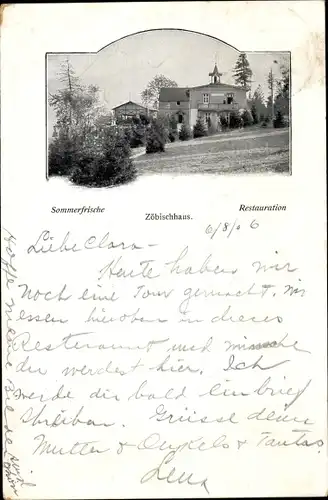 Sommerfrische
Zöbischhaus.
Restauration
6/8/06
Liebe Clara –
Heute haben wir
Noch eine Tour gemacht. Wir
essen hieroben in dieses
Restaurant und wünsche
du werdest hier. Ich
werde dir bald ein brief
schriben. Grüsse deine
Mutter & Onkels & Tantes.
Lena
Hoffe meine